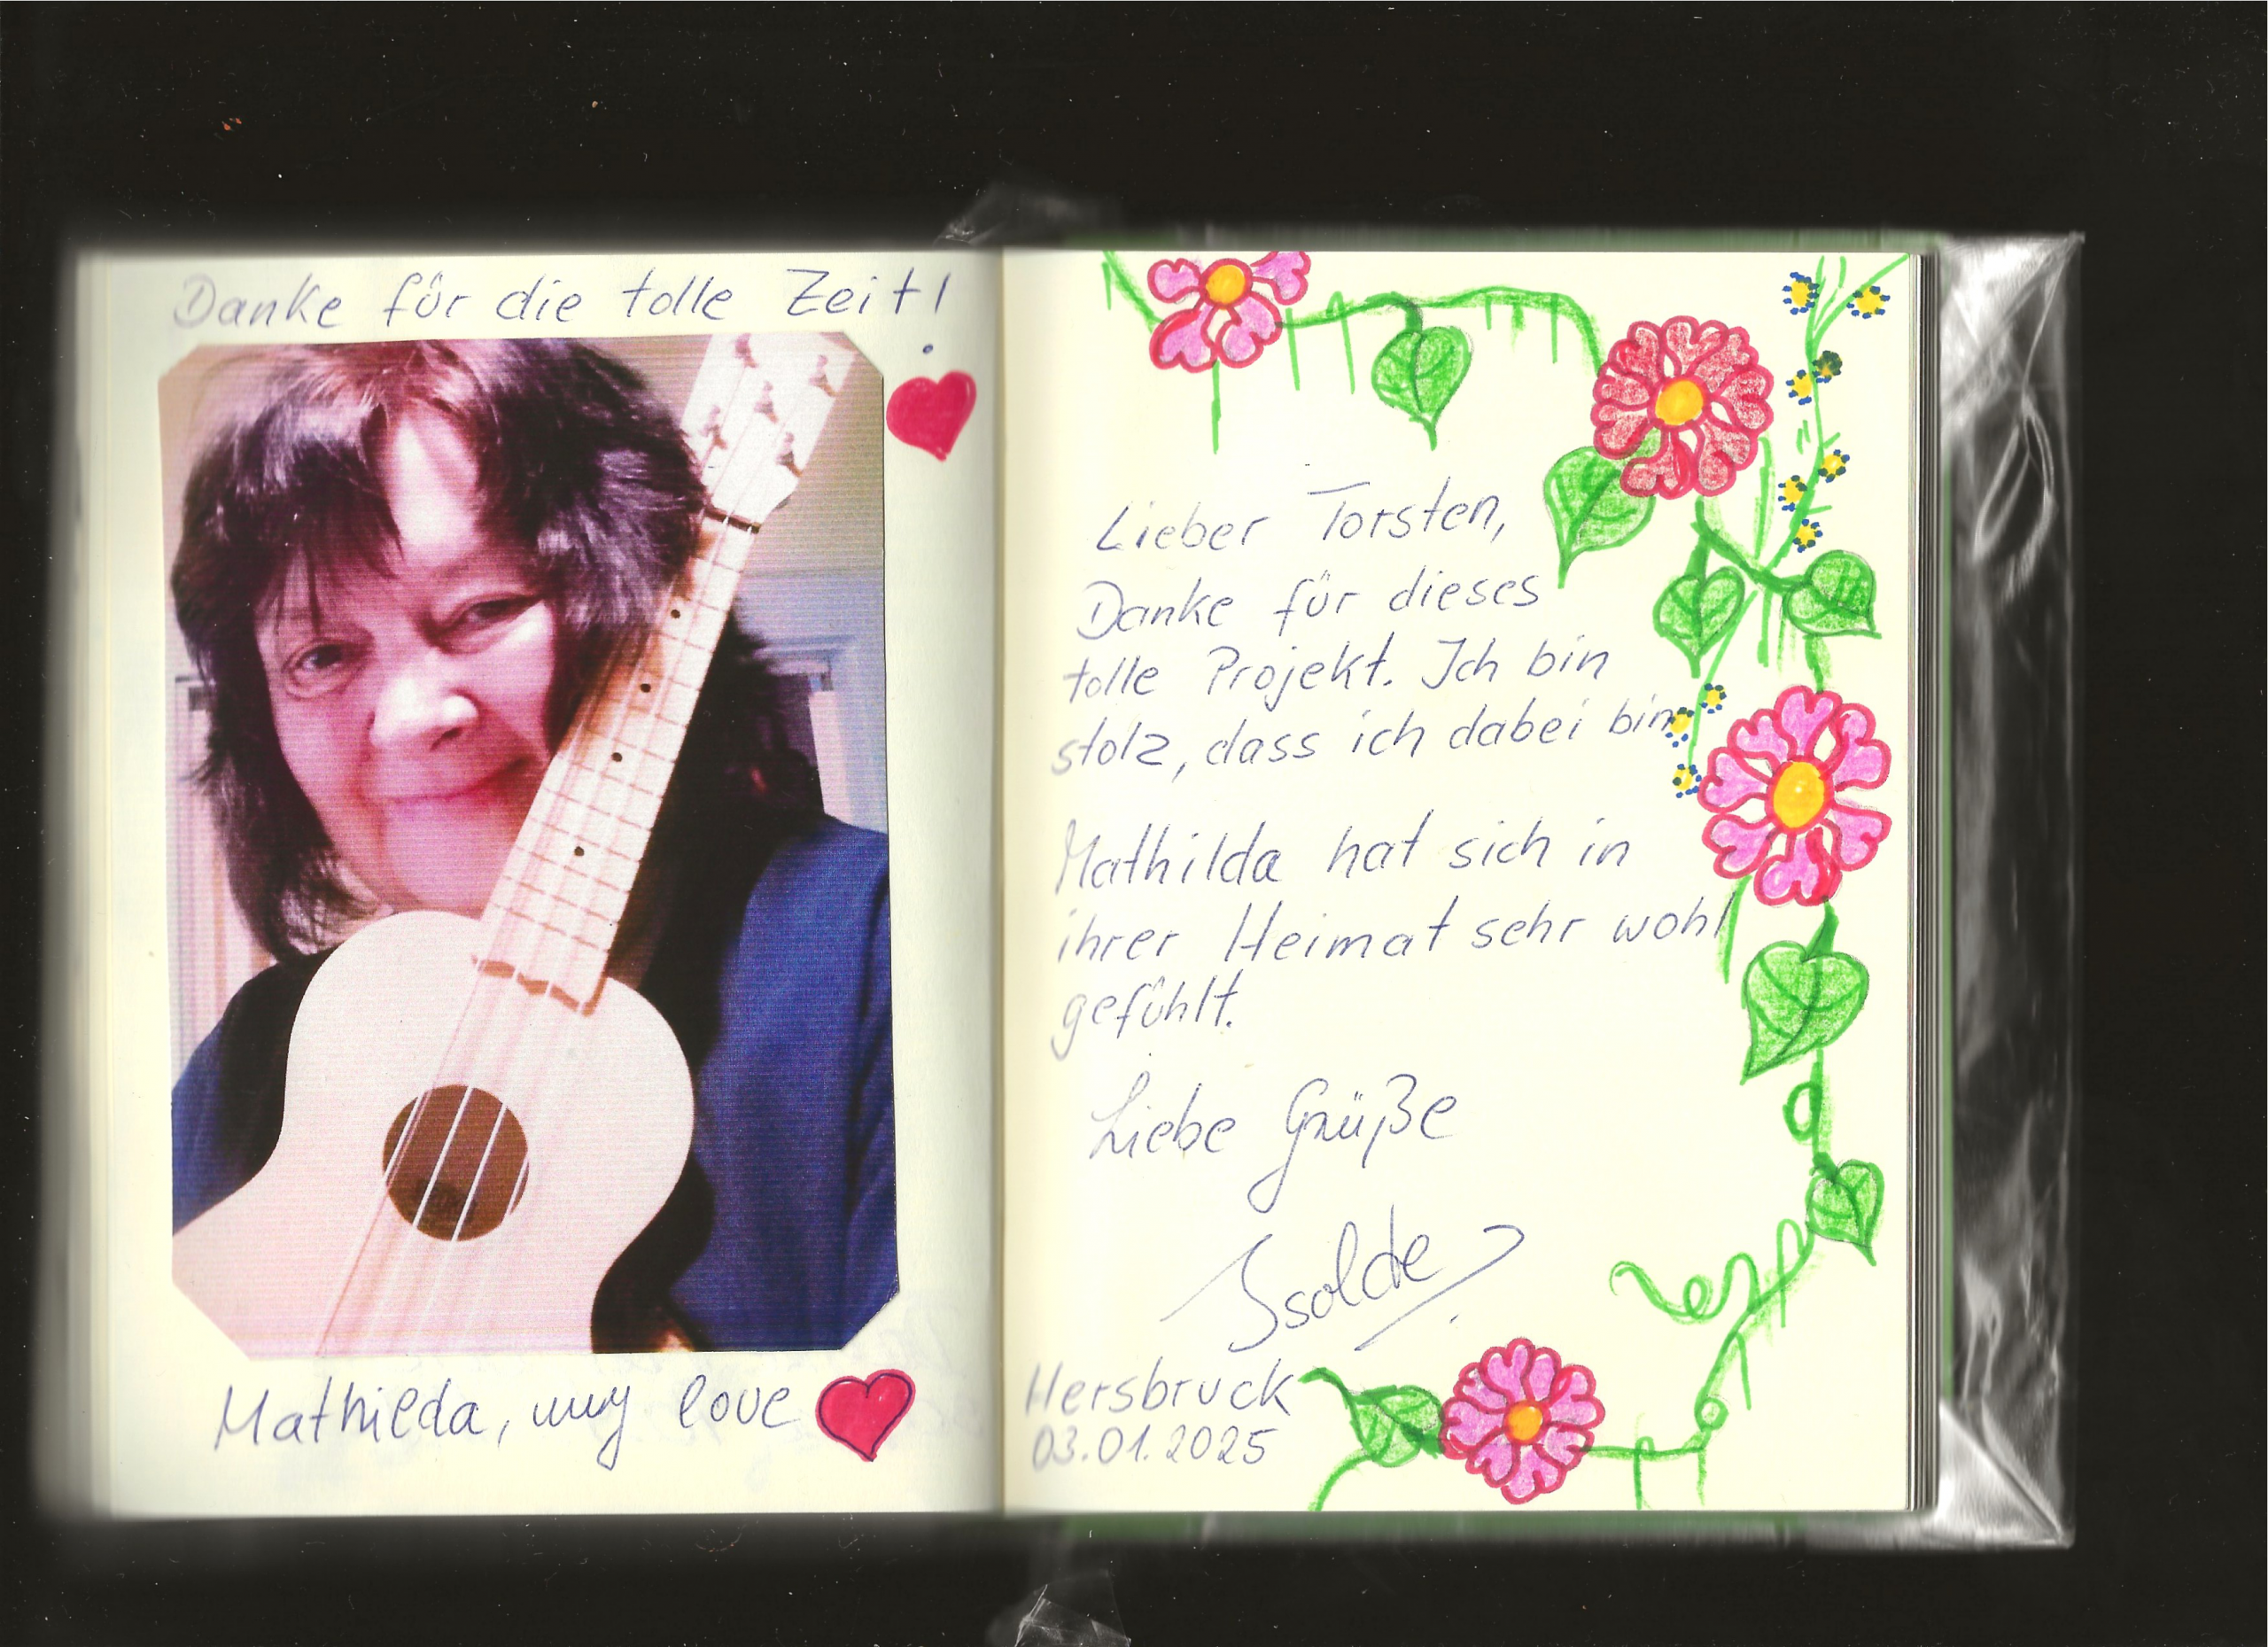 Danke für die tolle Zeit!
Mathilda, my love
Lieber Torsten,
Danke für dieses
tolle Projekt. Ich bin
stolz, dass ich dabei bin
Mathilda hat sich in
ihrer Heimat sehr wohl
gefühlt.
Liebe Grüße
Isolde
Hersbruck
03.01.2025